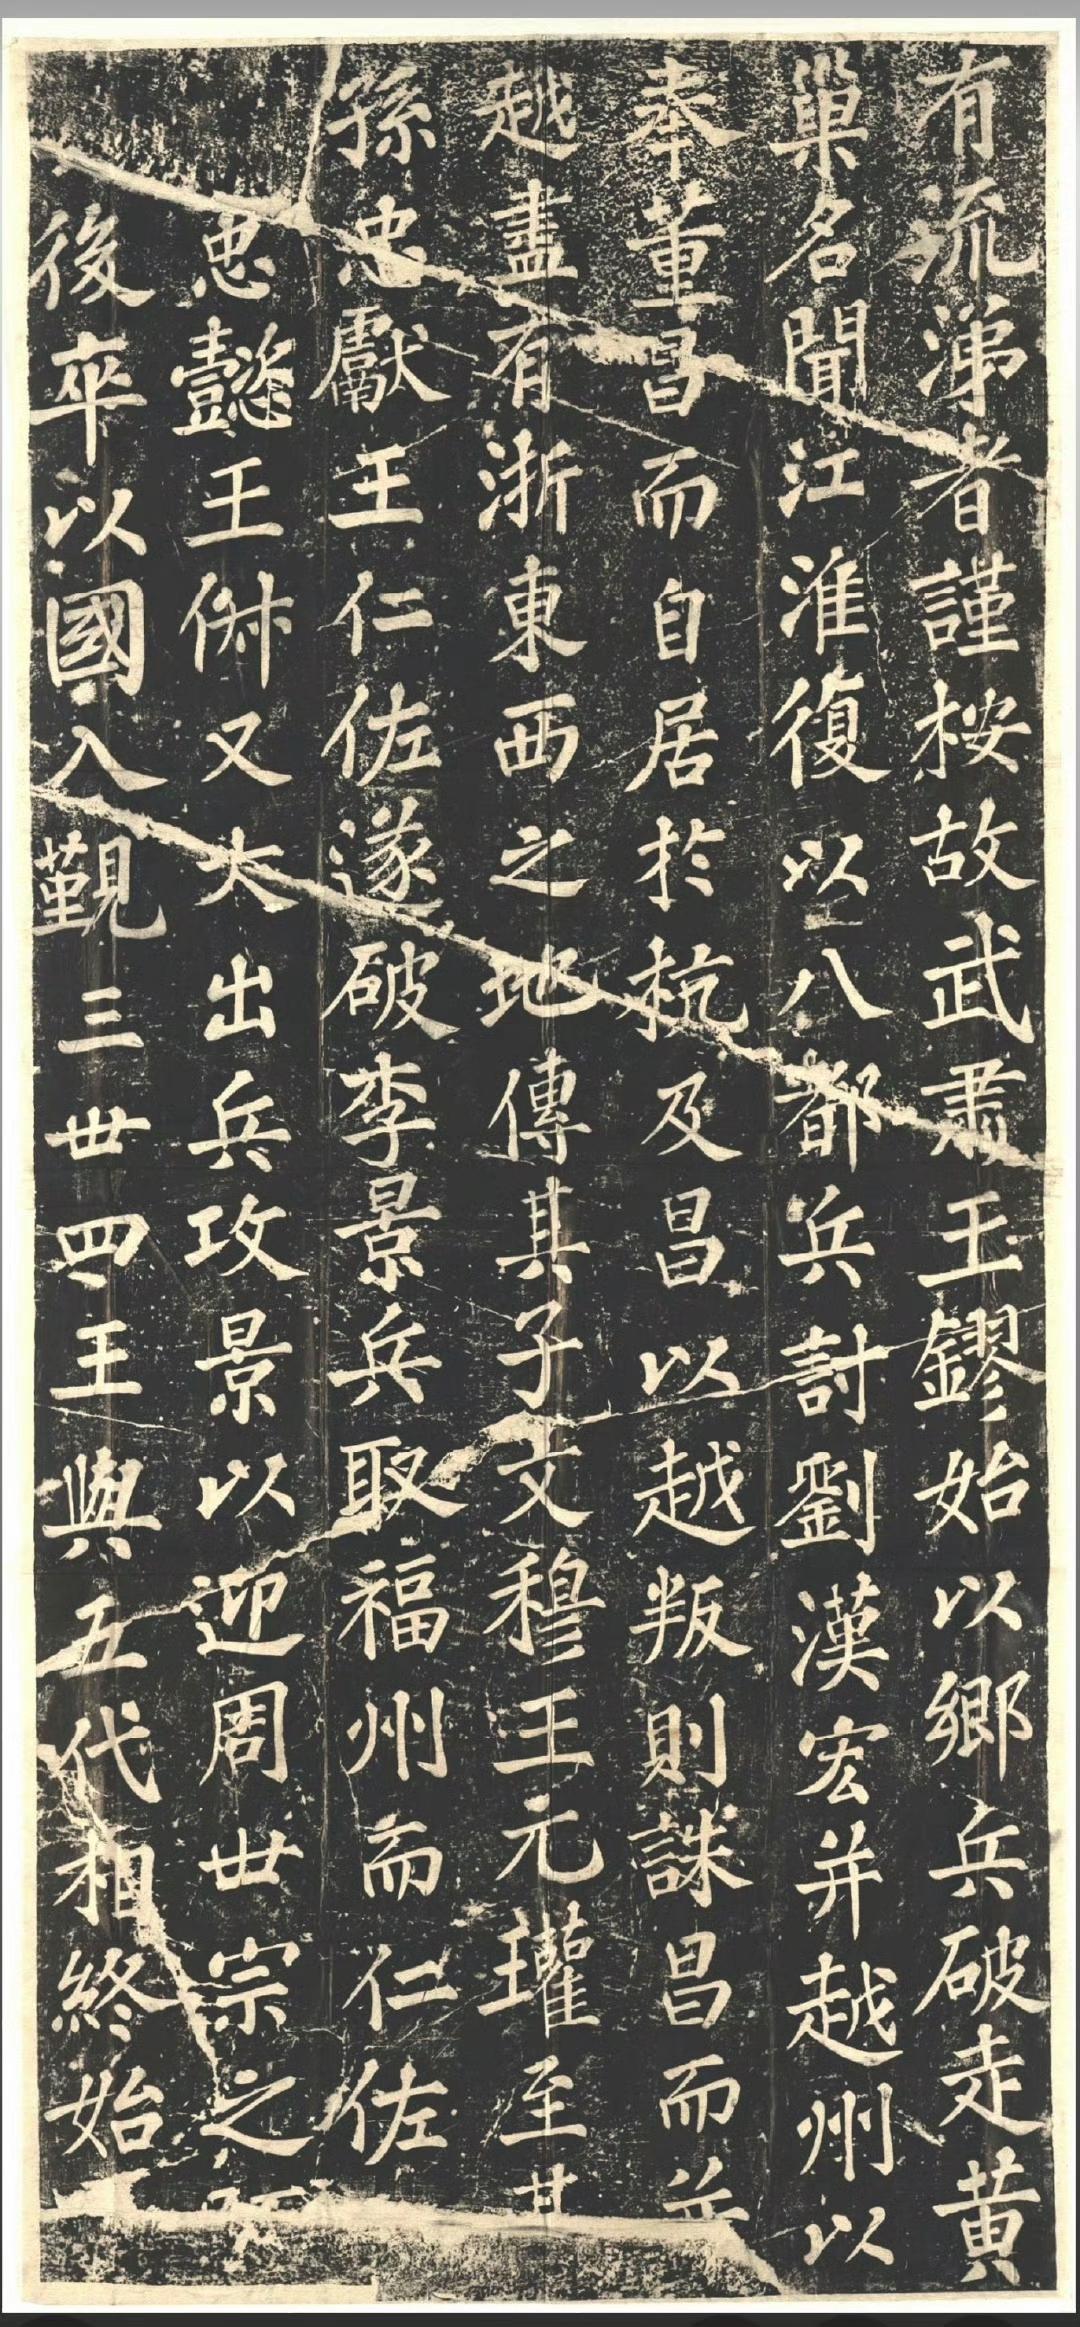 有流涕者謹按故武肅王鏐始以鄉兵破走黃
巢名聞江淮復以八都兵討劉漢宏并越州以
奉董昌而自居於杭及昌以越叛則誅昌而并
越盡有浙東西之地傳其子文穆王元瓘至其
孫忠獻王仁佐遂破李景兵取福州而仁佐
忠懿王俶又大出兵攻景以迎周世宗之
後卒以國入覲三世四王與五代相終始